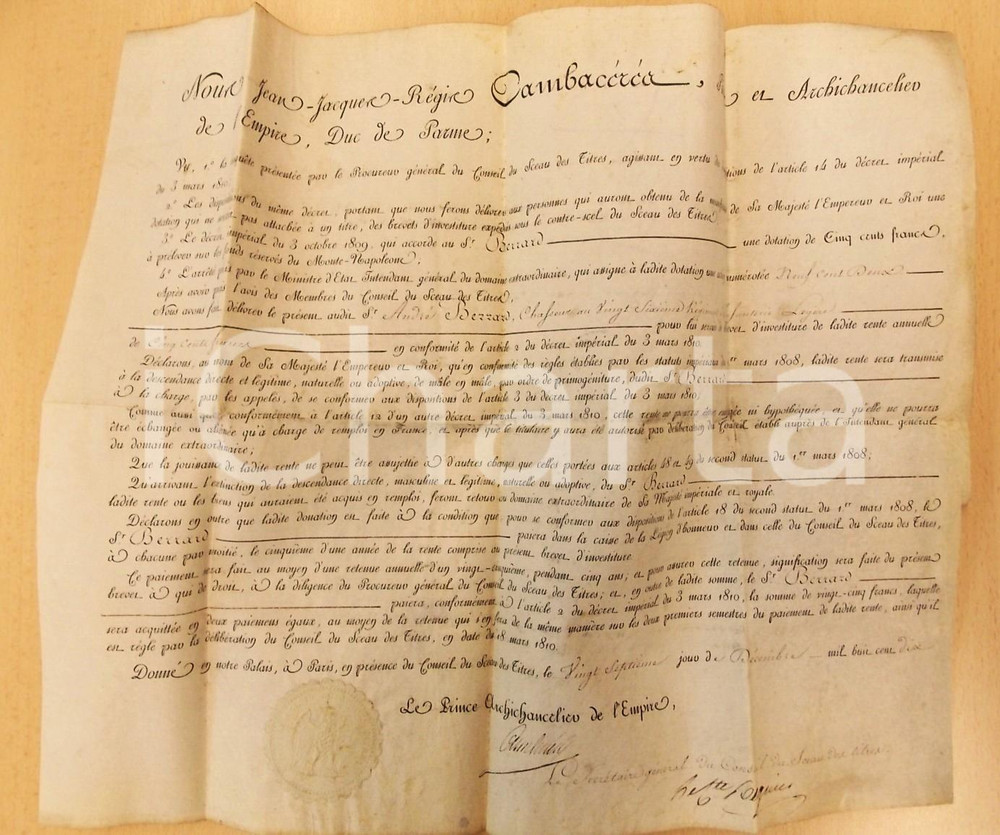 Nous Jean-Jacques-Régis Cambacérès, et Archichancelier
de l'Empire, Duc de Parme;
Vu, 1.° la requête présentée par le Procureur général du Conseil du Sceau des Titres, agissant en vertu des dispositions de l'article 14 du décret impérial
du 3 mars 1810
2.° Les dispositions du même décret, portant que nous ferons délivrer aux personnes qui auront obtenu de la munificence de Sa Majesté l'Empereur et Roi une
dotation qui ne serait pas attachée à un titre, des brevets d'investiture expédiés sous le contre-scel du Sceau des Titres
3.° Le décret impérial du 3 octobre 1809, qui accorde au S.r Berrard une dotation de Cinq cents francs,
à prélever sur les fonds réservés du Monte-Napoleone;
4.° L'arrêté pris par le Ministre d'État Intendant général du domaine extraordinaire, qui assigne à ladite dotation numérotée Neuf cent Deux
Après avoir pris l'avis des Membres du Conseil du Sceau des Titres,
Nous avons fait délivrer le présent audit S.r André Berrard, Chasseur au Vingt Sixième Régiment d'Infanterie Légère
pour lui servir de brevet d'investiture de ladite rente annuelle
de Cinq cents francs en conformité de l'article 2 du décret impérial du 3 mars 1810
Déclarons, au nom de Sa Majesté l'Empereur et Roi, qu'en conformité des règles établies par les statuts impériaux du 1.er mars 1808, ladite rente sera transmise
à la descendance directe et légitime, naturelle ou adoptive, de mâle en mâle, par ordre de primogéniture, dudit S.r Berrard
à la charge, par les appelés, de se conformer aux dispositions de l'article 3 du décret impérial du 3 mars 1810,
Comme aussi que conformément à l'article 12 d'un autre décret impérial du 3 mars 1810, cette rente ne pourra être engagée ni hypothéquée, et qu'elle ne pourra
être échangée ou aliénée qu'à charge de remploi en France, et après que le titulaire y aura été autorisé par délibération du Conseil établi auprès de l'Intendant général
du domaine extraordinaire;
Que la jouissance de ladite rente ne peut être assujettie à d'autres charges que celles portées aux articles 48 et 49 du second statut du 1.er mars 1808;
Qu'arrivant l'extinction de la descendance directe, masculine et légitime, naturelle ou adoptive, du S.r Berrard
ladite rente ou les biens qui auraient été acquis en remploi, feront retour au domaine extraordinaire de Sa Majesté impériale et royale.
Déclarons en outre que ladite donation est faite à la condition que pour se conformer aux dispositions de l'article 18 du second statut du 1.er mars 1808, le
S.r Berrard paiera dans la caisse de la Légion d'honneur et dans celle du Conseil du Sceau des Titres,
à chacune par moitié, le cinquième d'une année de la rente comprise au présent brevet d'investiture.
Ce paiement sera fait au moyen d'une retenue annuelle d'un vingt-cinquième, pendant cinq ans; et pour assurer cette retenue, signification sera faite du présent
brevet à qui de droit, à la diligence du Procureur général du Conseil du Sceau des Titres; et, en outre de ladite somme, le S.r Berrard
paiera, conformément à l'article 2 du décret impérial du 3 mars 1810, la somme de vingt-cinq francs, laquelle
sera acquittée en deux paiemens égaux, au moyen de la retenue qui s'en fera de la même manière sur les deux premiers semestres du paiement de ladite rente, ainsi qu'il
est réglé par la délibération du Conseil du Sceau des Titres, en date du 18 mars 1810.
Donné en notre Palais, à Paris, en présence du Conseil du Sceau des Titres, le Vingt Septième jour de Décembre mil huit cent dix
Le Prince Archichancelier de l'Empire,
Le Secrétaire général du Conseil du Sceau des titres
Charta